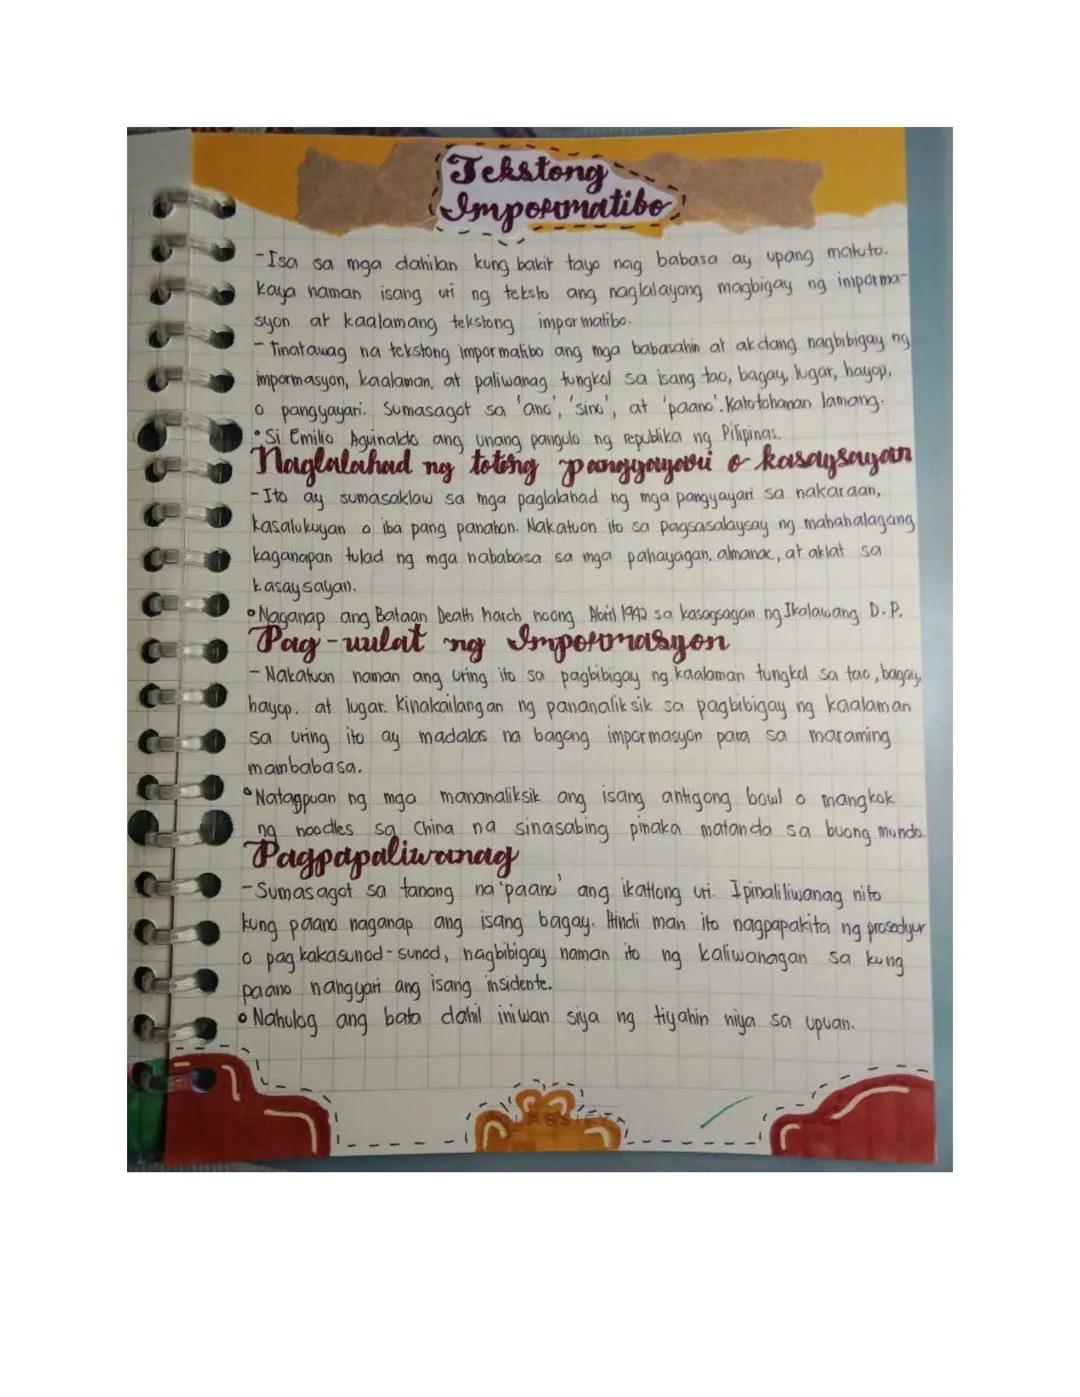 Tekstong
Impormatibo
-Isa sa mga dahilan kung bakit tayo nag babasa ay upang matuto.
Kaya naman isang uri ng teksto ang naglalayong magbigay ng imporma-
syon at kaalamang tekstong impormatibo.
- Tinatawag na tekstong impormatibo ang mga babasahin at akdang nagbibigay ng
impormasyon, kaalaman, at paliwanag tungkol sa isang tao, bagay, lugar, hayop,
o pangyayari. Sumasagot sa 'ano', 'sino', at 'paano'. Katotohanan lamang.
• Si Emilio Aguinaldo ang unang pangulo ng republika ng Pilipinas.
Naglalahad ng totong pangyayari o kasaysayan
-Ito ay sumasaklaw sa mga paglalahad ng mga pangyayari sa nakaraan,
kasalukuyan o iba pang panahon. Nakatuon ito sa pagsasalaysay ng mahahalagang
kaganapan tulad ng mga nababasa sa mga pahayagan, almanac, at aklat sa
kasaysayan.
• Naganap ang Bataan Death March noong Abril 1942 sa kasagsagan ng Ikalawang D.P.
Pag-uulat ng Impormasyon
- Nakatuon naman ang uring ito sa pagbibigay ng kaalaman tungkol sa tao, bagay,
hayop, at lugar. Kinakailangan ng pananaliksik sa pagbibigay ng kaalaman
sa uring ito ay madalas na bagong impormasyon para sa maraming
mambabasa.
• Natagpuan ng mga mananaliksik ang isang antigong bowl o mangkok
ng noodles sa China na sinasabing pinaka matanda sa buong mundo.
Pagpapaliwanag
-Sumasagot sa tanong na 'paano' ang ikatlong uri. Ipinaliliwanag nito
kung paano naganap ang isang bagay. Hindi man ito nagpapakita ng prosedyur
o pagkakasunod-sunod, nagbibigay naman ito ng kaliwanagan sa kung
paano nangyari ang isang insidente.
• Nahulog ang bata dahil iniwan siya ng tiyahin niya sa upuan.